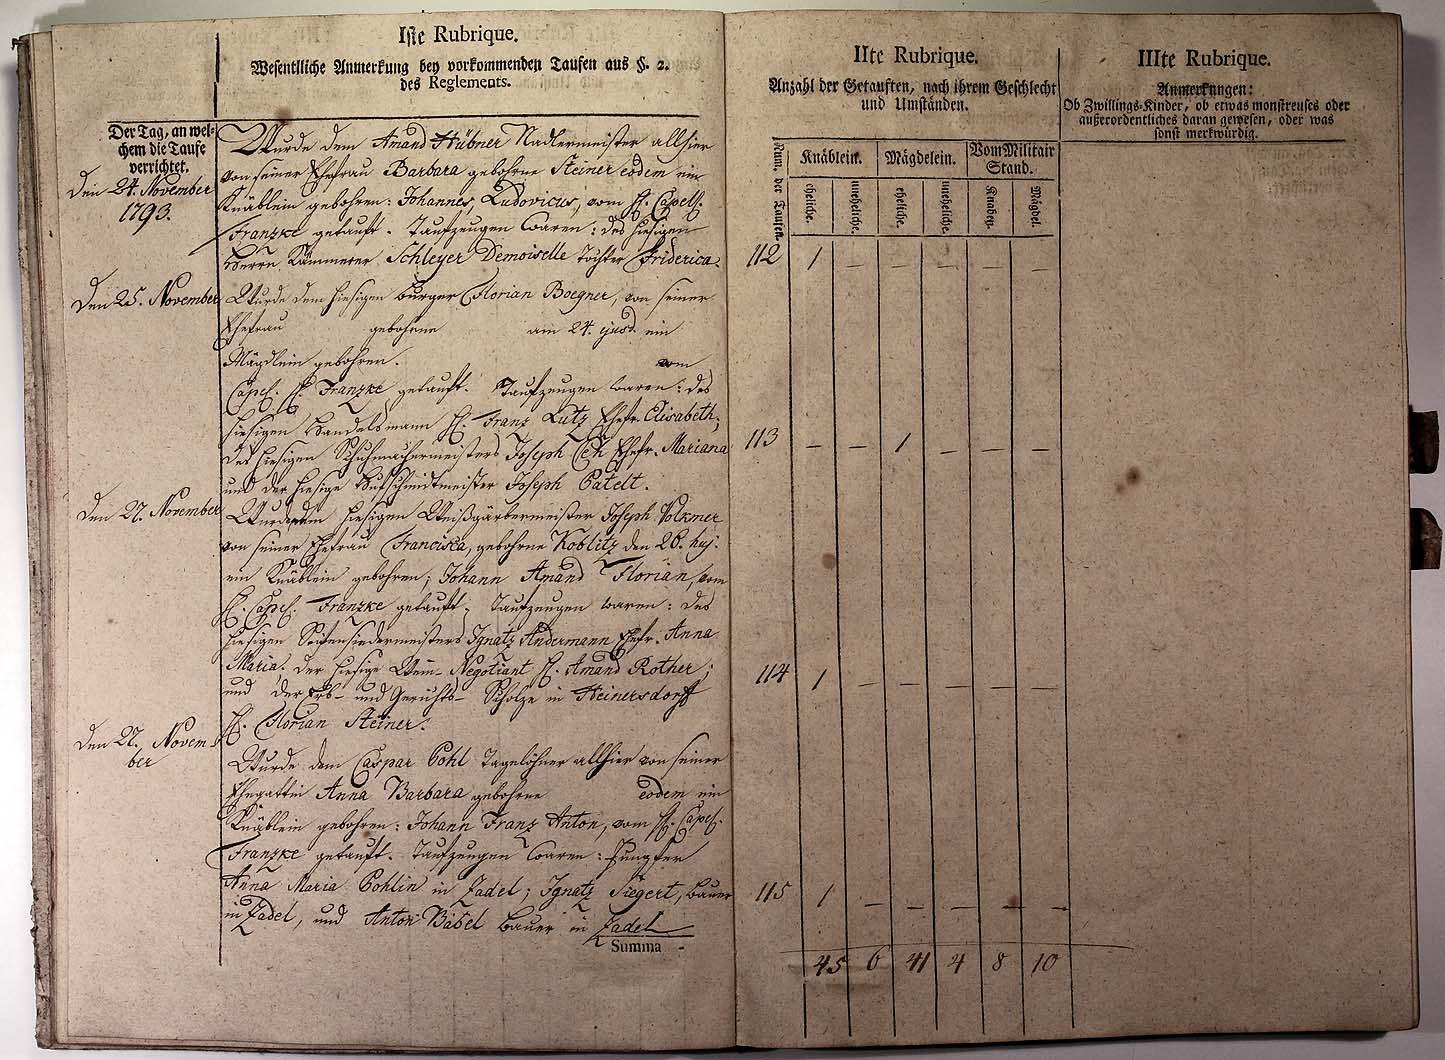 Iste Rubrique.
Wesentliche Anmerkung bey vorkommenden Taufen aus §. 2.
des Reglements.
Der Tag, an wel-
chem die Taufe
verrichtet.
Den 24. November
1793.
Wurde dem Amand Hübner Nadlermeister allhier
von seiner Ehefrau Barbara gebohrne Steiner eodem ein
Knäblein gebohren: Johannes, Ludovicus, vom H. Capell.
Franzke getauft. Taufzeugen waren: des hiesigen
Herrn Kämmerer Schleyer Demoiselle Tochter Friderica.
Den 25. November
Wurde dem hiesigen Burger Florian Boegner, von seiner
Ehefrau gebohrne am 24. ejusd. ein
Mägdlein gebohren. vom
Capel. H. Franzke getauft. Taufzeugen waren: des
hiesigen Handelsmann H. Franz Lutz Ehefr. Elisabeth;
des hiesigen Schuhmachermeisters Joseph Ehefr. Mariana
und der hiesige Hufschmidtmeister Joseph Patelt.
Den 27. November
Wurde dem hiesigen Weißgärbermeister Joseph Volkmer
von seiner Ehefrau Francisca, gebohrne Koblitz den 26. huj.
ein Knäblein gebohren; Johann Amand Florian, vom
H. Capel. Franzke getauft; Taufzeugen waren: des
hiesigen Seifensiedermeisters Ignatz Andermann Ehefr. Anna
Maria. der hiesige Wein-Negotiant H. Amand Rother;
und der Erb- und Gerichts-Scholze in Heinersdorff
H. Florian Steiner.
Den 27. Novem
ber
Wurde dem Caspar Pohl Tagelöhner allhier von seiner
Ehegattin Anna Barbara gebohrne eodem ein
Knäblein gebohren: Johann Franz Anton, vom H. Capel.
Franzke getauft. Taufzeugen waren: Jungfer
Anna Maria Pohlin in Zadel; Ignatz Siegert, Bauer
in Zadel, und Anton Babel Bauer in Zadel
Summa -
IIte Rubrique.
Anzahl der Getauften, nach ihrem Geschlecht
und Umständen.
Num. der Taufen.
Knäblein. Mägdelein. Vom Militair
Stand.
eheliche. uneheliche. eheliche. uneheliche. Knaben. Mägdel.
112 1 – – – – –
113 – – 1 – – –
114 1 – – – – –
115 1 – – – – –
45 6 41 4 8 10
IIIte Rubrique.
Anmerkungen:
Ob Zwillings-Kinder, ob etwas monstreuses oder
außerordentliches daran gewesen, oder was
sonst merkwürdig.